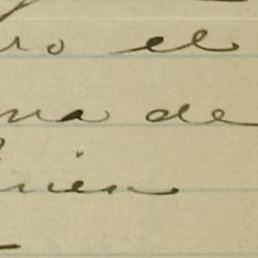 ro el
na de
nien